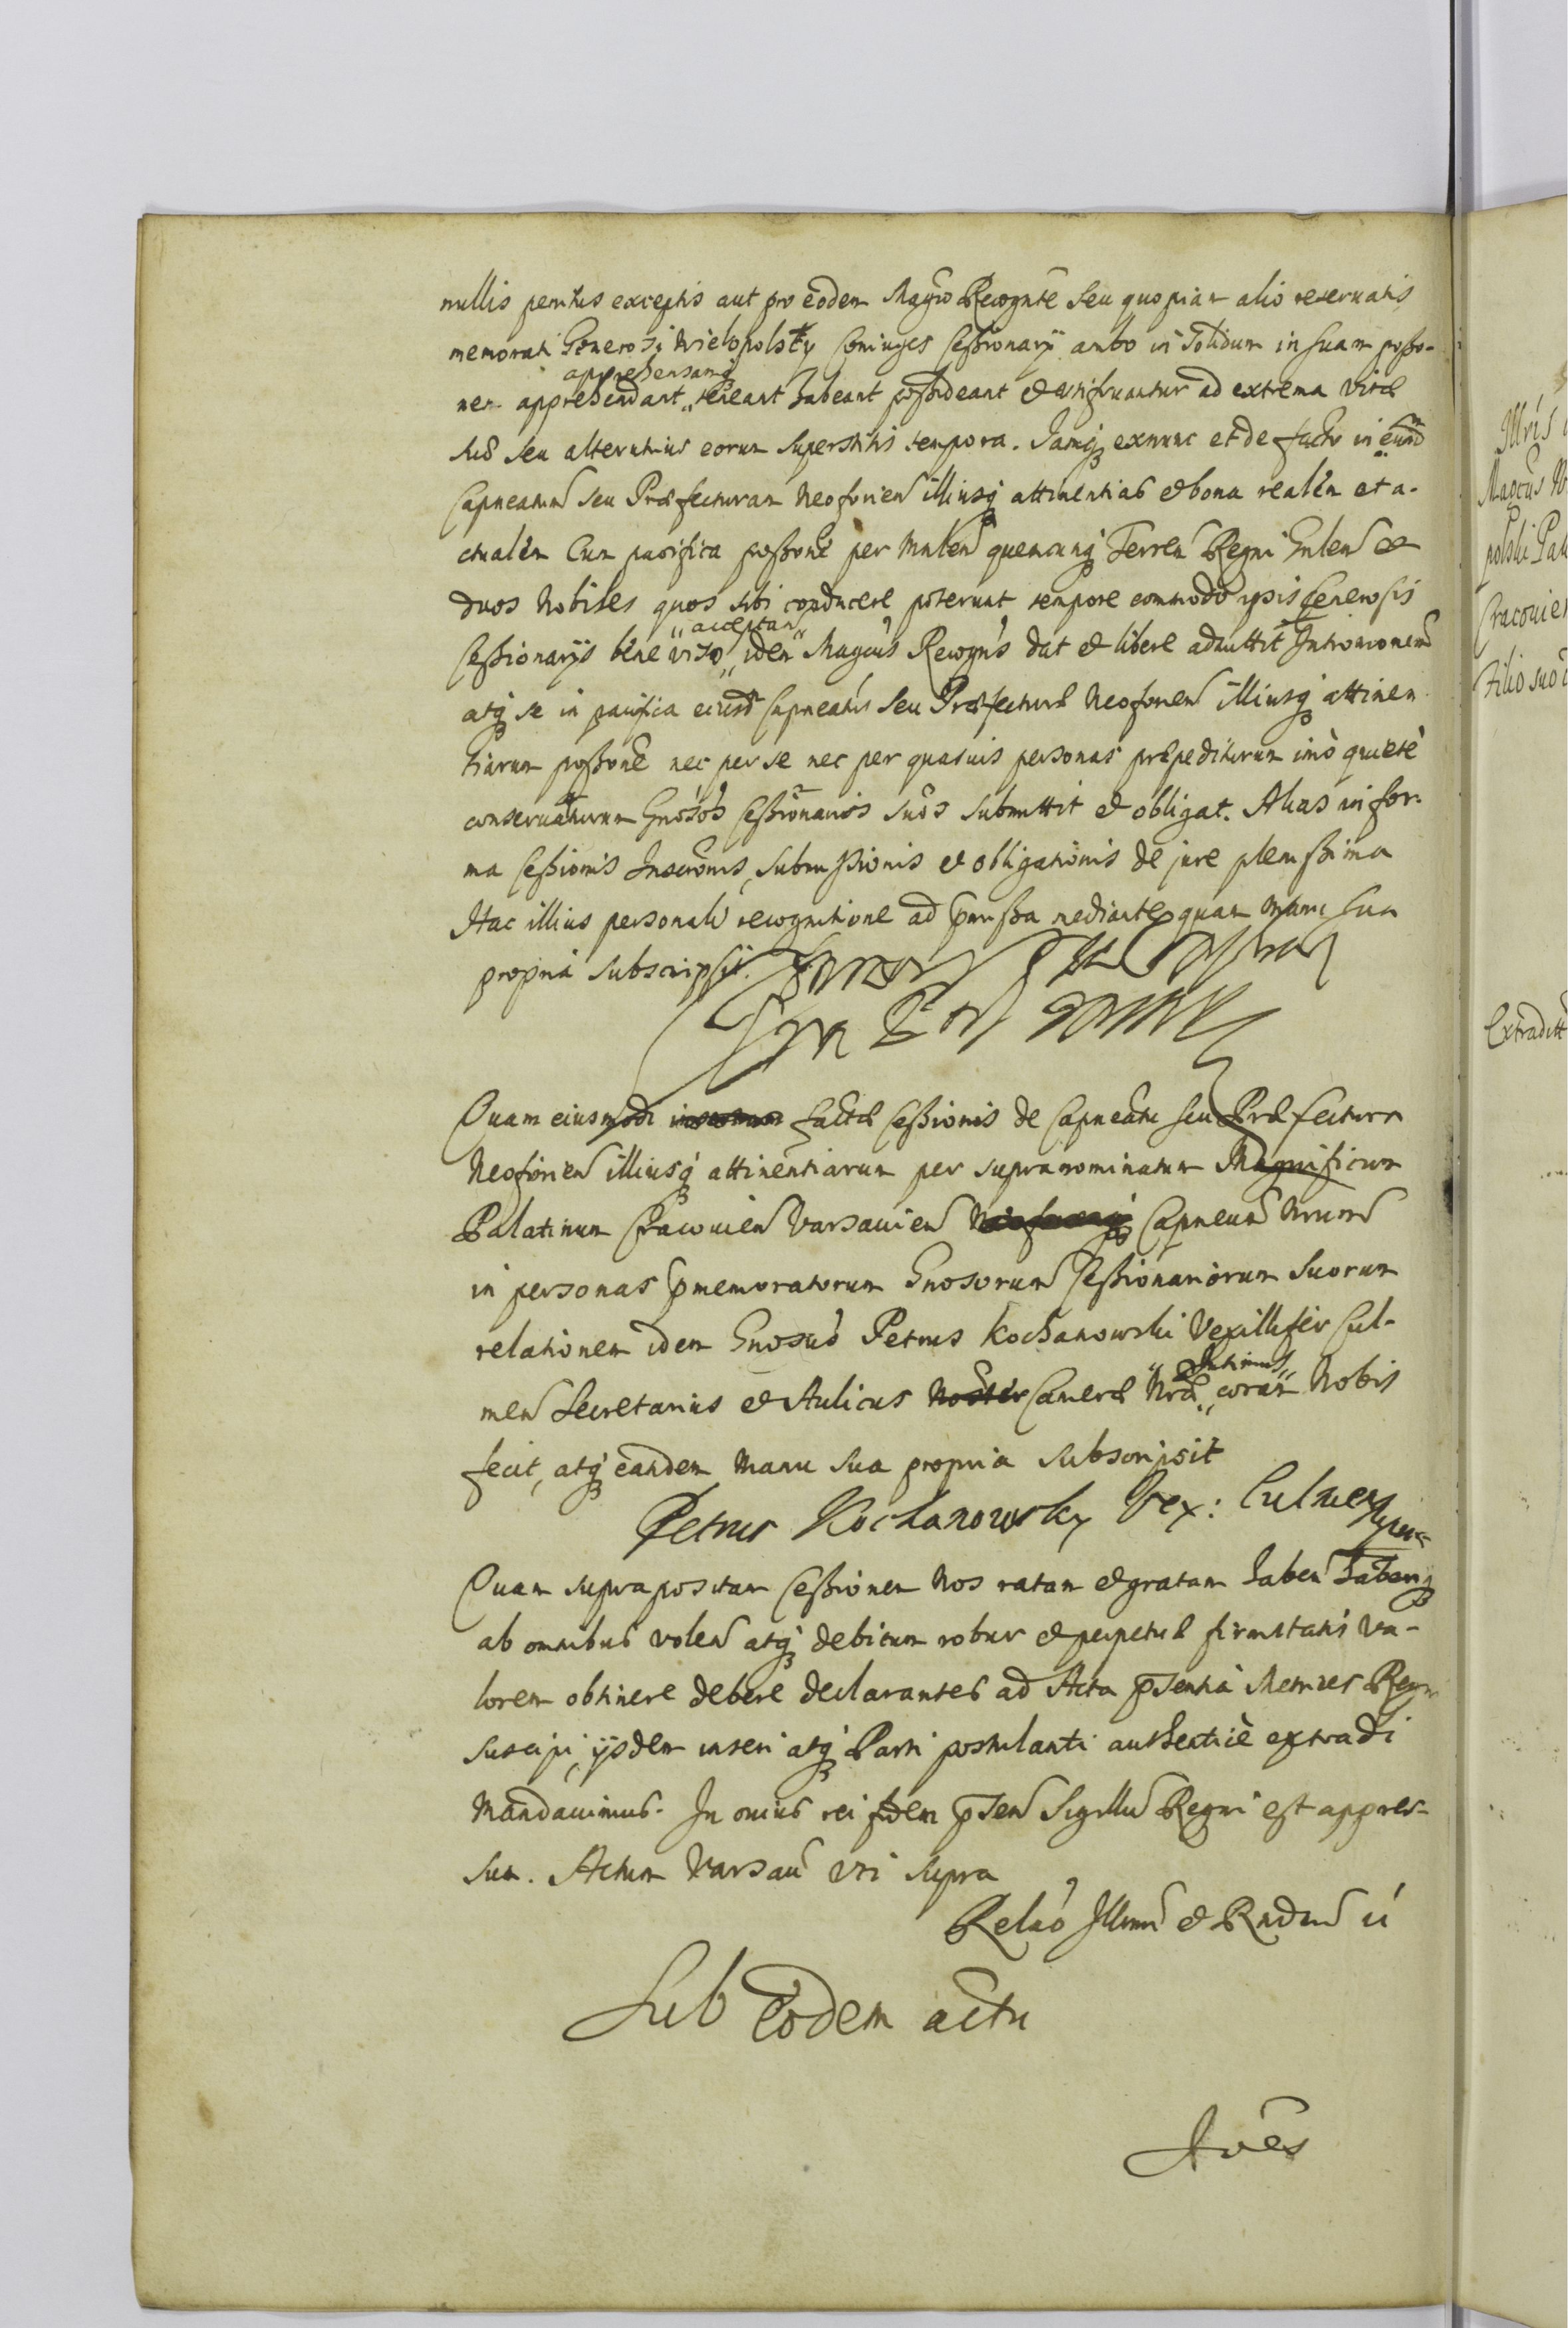 nullis penitus exceptis aut pro eodem Magco Recognte seu quopiam alio reservatis
memorati Generosi Wielopolsky Coniuges Cessionarij ambo in solidum in suam posso-
apprehensamq
nem apprehendant teneant habeant possideant et utifruantur ad extrema vitæ
suæ seu alterutrius eorum superstitis tempora. Jamq exnunc et de facto in eund
Capneatum seu Præfecturam Neoforien illiusq attinentias et bona realem et a-
ctualem cum pacifica possone per Mnlem quemcunq Terren Regni Gnlem et
duos Nobiles quos sibi conducere poterunt tempore commodo ipsis Generosis
acceptan
Cessionarijs bene viso idem Magcus Recogns dat et libere admittit Intromonem
atq se in pacifica eiusd Capneatus seu Præfecturæ Neoforien illiusq attinen
tiarum possone nec per se nec per quasuis personas præpediturum imò quietè
conservaturum Gnosos Cessionarios suos submittit et obligat. Alias in for-
ma Cessionis Inscronis, submissionis et obligationis de jure plenissima
Hac illius personali recognitione ad pmissa mediante quam manu sua
propria subscripsit.
Quam eiusmodi factæ Cessionis de Capneatu seu Præfectura
Neoforien illiusq attinentiarum per supranominatum Magnificum
Palatinum Cracouien Varsauien Capneum Nrum
in personas pmemoratorum Gnosorum Cessionariorum suorum
relationem idem Gnosus Petrus Kochanowski Vexillifer Cul-
Intimus
men Secretarius et Aulicus Noster Cameræ Nræ coram Nobis
fecit, atq eandem manu sua propria subscripsit
Petrus Kochanowsky Vex: Culmensis
Quam suprapositam Cessionem Nos ratam et gratam haben haberiq
ab omnibus volen atq debitum robur et perpetuæ firmitatis va-
lorem obtinere debere declarantes ad Acta psentia Metrices Regni
suscipi, ijsdem inseri atq Parti postulanti authenticè extradi
mandauimus. In cuius rei fidem psen Sigillu Regni est appres-
sum. Actum Varsau uti supra
Relao Illmi et Rndmi ú
Sub Eodem actu
Illris
Magcus
polski Pal
Cracouien
Filio suo
Extraditt